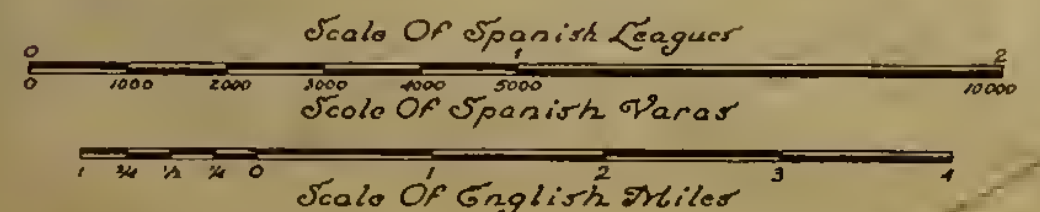 Scale Of Spanish Leagues
0 1 2
0 1000 2000 3000 4000 5000 10000
Scale Of Spanish Varas
1 3/4 1/2 1/4 0 1 2 3 4
Scale Of English Miles